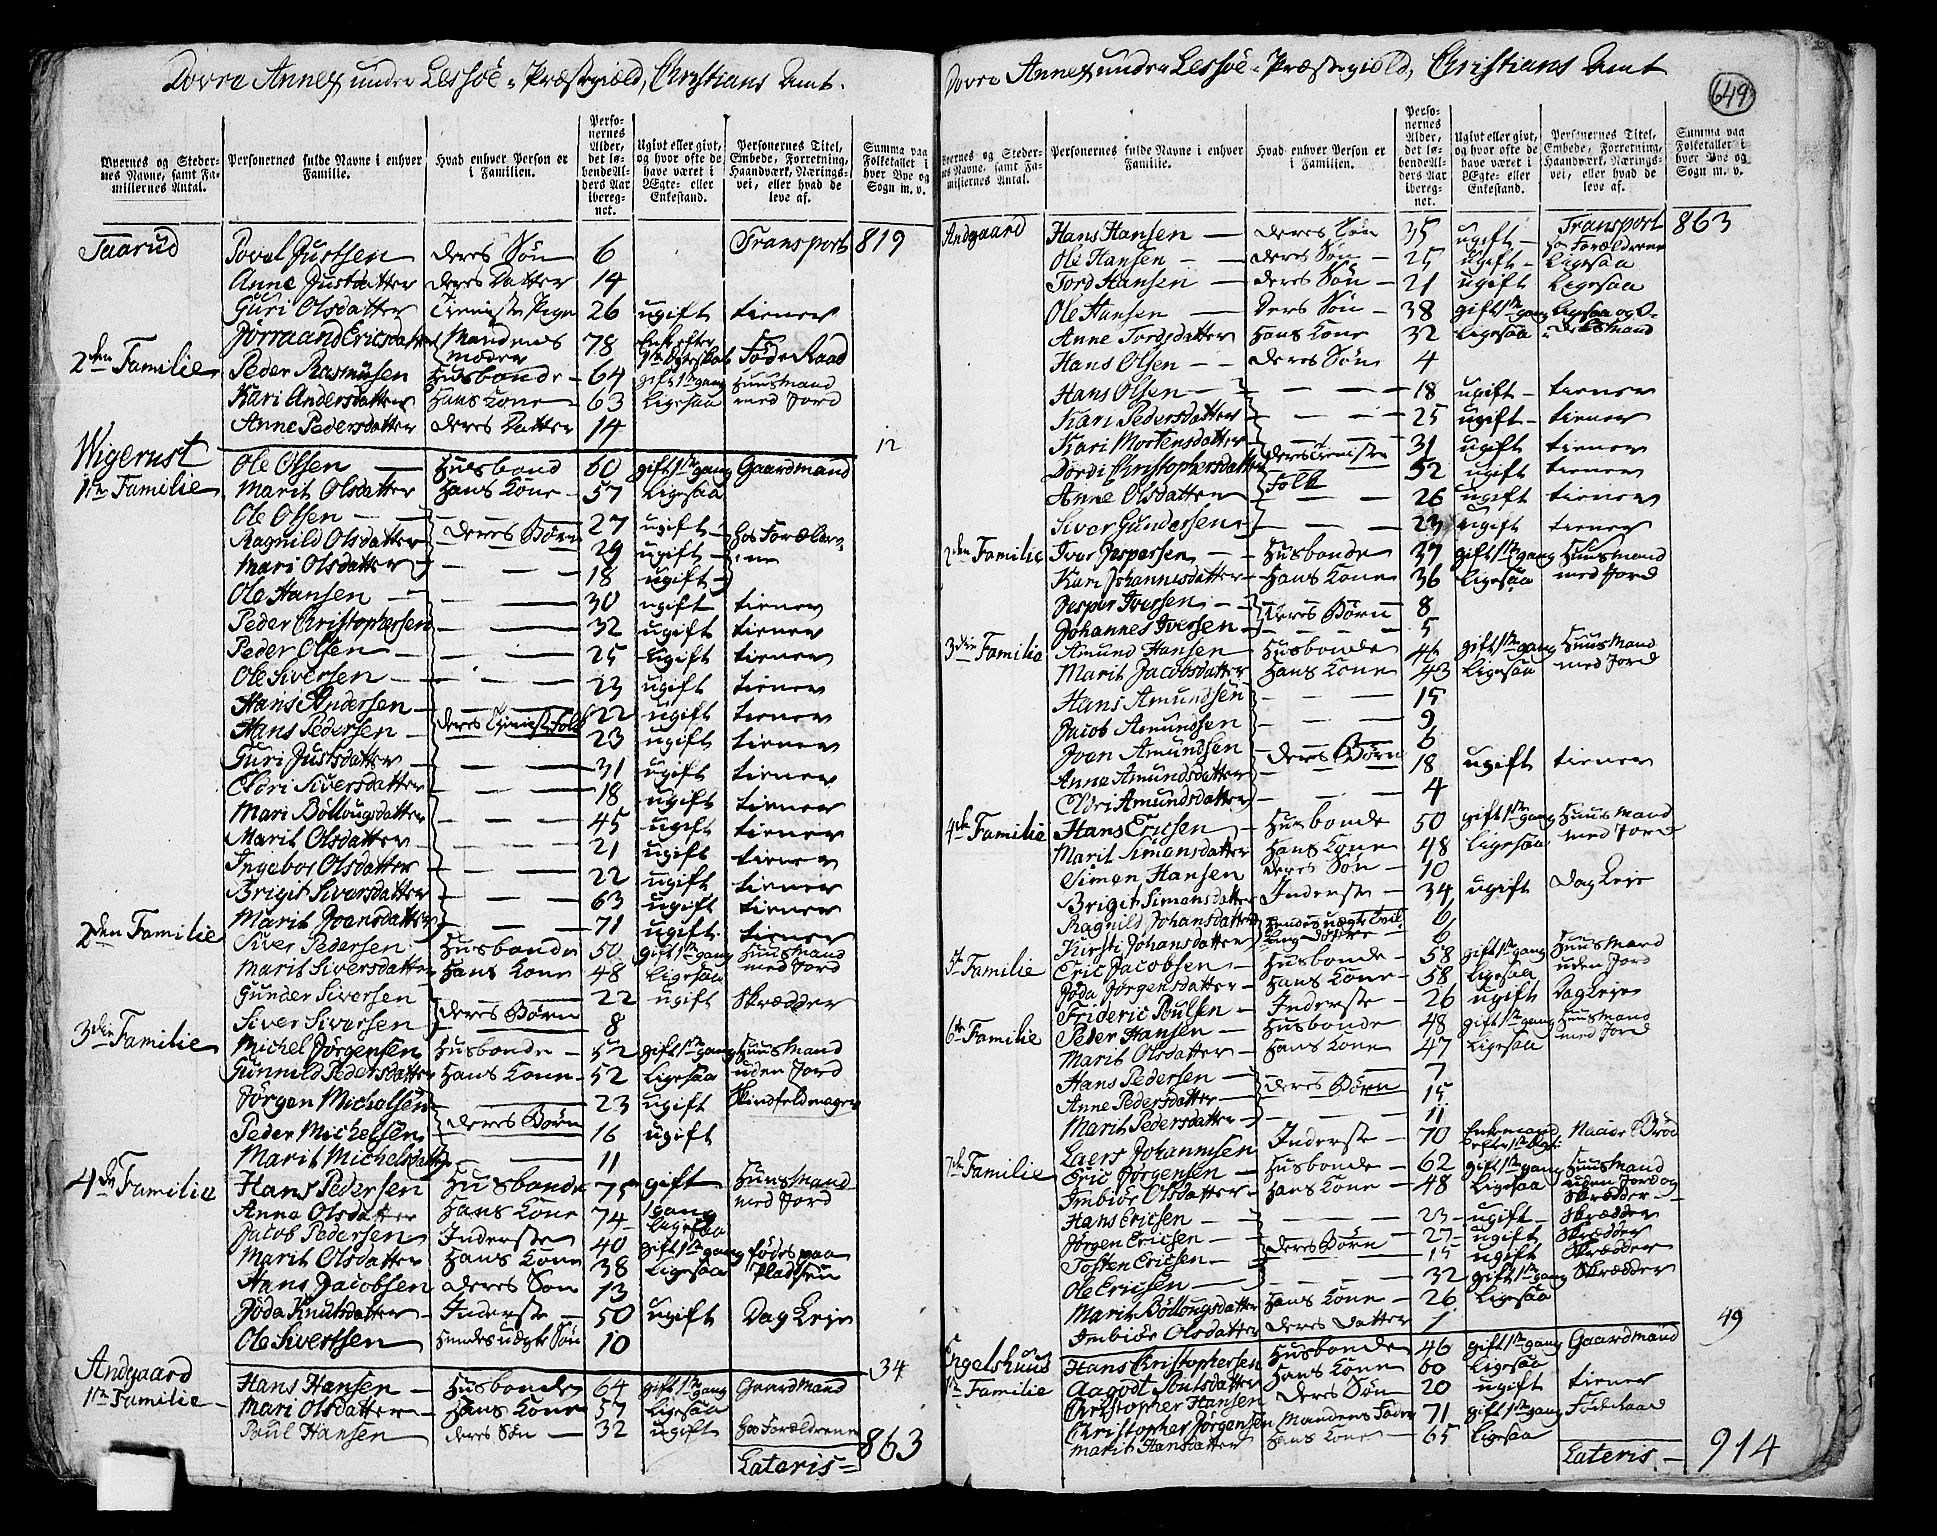 Dovre Annex under Lessøe-Præstegield, Christians Amt.
Byernes og Steder-nes Navne, samt Fa-miliernes Antal.
Personernes fulde Navne i enhver Familie.
Hvad enhver Person er i Familien.
Perso-nernes Alder, det lø-bende Al-ders Aar iberegnet.
Ugivt eller givt, og hvor ofte de have været i Ægte- eller Enkestand.
Personernes Titel, Embede, Forretning, Haandværk, Nærings-vei, eller hvad de leve af.
Summa paa Folketallet i hver Bye og Sogn m. v.
Taarud Povel Justsen deres Søn 6 Transport 819
Anne Justdatter deres Datter 14
Guri Olsdatter Tieniste Pige 26 ugift tiener
Jørraand Ericsdatter Mandens moder 78 Enke efter 1te Ægteskab Føde Raad
2den Familie Peder Rasmusen Husbonde 64 gift 1te gang Huusmand
Kari Andersdatter Hans Kone 63 Ligesaa med Jord
Anne Pedersdatter deres Datter 14
12
Wigerust
1te Familie Ole Olsen Husbond 60 gift 1te gang Gaardmand
Marit Olsdatter Hans Kone 57 Ligesaa
Ole Olsen 27 ugift
Ragnild Olsdatter deres Børn 29 ugift hos Forældrene
Mari Olsdatter 18 ugift
Ole Hansen 30 ugift tiener
Peder Christophersen 32 ugift tiener
Peder Olsen 25 ugift tiener
Ole Siversen 23 ugift tiener
Hans Andersen 22 ugift tiener
Hans Pedersen deres Tieniste Folk 23 ugift tiener
Guri Justsdatter 31 ugift tiener
Eldri Siversdatter 18 ugift tiener
Mari Bøllougsdatter 45 ugift tiener
Marit Olsdatter 21 ugift tiener
Ingebor Olsdatter 22 ugift tiener
Brigit Siversdatter 63 ugift tiener
Marit Joensdatter 71 ugift tiener
2den Familie Siver Pedersen Husbonde 50 gift 1te gang Huusmand
Marit Siversdatter Hans Kone 48 Ligesaa med Jord
Gunder Siversen 22 ugift Skrædder
Siver Siversen deres Børn 8
3die Familie Michel Jørgensen Husbonde 52 gift 1te gang Huusmand
Gunnild Pedersdatter Hans Kone 52 Ligesaa uden Jord
Jørgen Michelsen 23 ugift Skindfeldmager
Peder Michelsen deres Børn 16 ugift
Marit Michelsdatter 11
4de Familie Hans Pedersen Husbonde 75 gift Huusmand
Anne Olsdatter Hans Kone 74 1gang Ligesaa med Jord
Jacob Pedersen Inderste 40 gift 1te gang fødes paa
Marit Olsdatter Hans Kone 38 Ligesaa Pladsen
Hans Jacobsen deres Søn 13
Jøda Knutsdatter Inderste 50 ugift Dag Leje
Ole Sivertsen Hendes uægte Søn 10
34
Andgaard
1te Familie Hans Hansen Husbonde 64 gift 1te gang Gaardmand
Mari Olsdatter Hans Kone 57 Ligesaa
Paul Hansen deres Søn 32 ugift hos Forældrene
Lateris 863
Dovre Annex under Lessøe-Præstegield, Christians Amt
649
Byernes og Steder-nes Navne, samt Fa-miliernes Antal.
Personernes fulde Navne i enhver Familie.
Hvad enhver Person er i Familien.
Perso-nernes Alder, det lø-bende Al-ders Aar iberegnet.
Ugivt eller givt, og hvor ofte de have været i Ægte- eller Enkestand.
Personernes Titel, Embede, Forretning, Haandværk, Nærings-vei, eller hvad de leve af.
Summa paa Folketallet i hver Bye og Sogn m. v.
Andgaard Hans Hansen deres Søn 35 ugift Transport hos Forældrene 863
Ole Hansen deres Søn 25 ugift Ligesaa
Tord Hansen deres Søn 21 ugift Ligesaa
Ole Hansen Deres Søn 38 gift 1te gang Ligesaa og
Anne Tordsdatter Hans Kone 32 Ligesaa
Hans Olsen deres Søn 4
Hans Olsen 18 ugift tiener
Kari Pedersdatter 25 ugift tiener
Kari Mortensdatter 31 ugift tiener
Dordi Christophersdatter deres Tieniste Folk 52 ugift tiener
Anne Olsdatter 26 ugift tiener
Siver Gundersen 23 ugift tiener
2den Familie Iver Jespersen Husbonde 37 gift 1te gang Huusmand
Kari Johannesdatter Hans Kone 36 Ligesaa med Jord
Jesper Iversen deres Børn 8
Johannes Iversen 5
3die Familie Amund Hansen Husbonde gift 1te gang Huusmand
Marit Jacobsdatter Hans Kone 43 Ligesaa med Jord
Hans Amundsen 15
Jacob Amundsen 9
Joen Amundsen deres Børn 6
Anne Amundsdatter 18 ugift tiener
Eldri Amundsdatter 4
4de Familie Hans Ericsen Husbonde 50 gift 1te gang Huusmand
Marit Simonsdatter Hans Kone 48 Ligesaa med Jord
Simen Hansen deres Søn 10
Brigit Simonsdatter Inderste 34 ugift Dag Leje
Ragnild Johansdatter Hendes uægte Tvil- 6
Kirsti Johansdatter ling Døttre 6
5te Familie Eric Jacobsen Husbonde 58 gift 1te gang Huusmand
Jøda Jørgensdatter Hans Kone 58 Ligesaa uden Jord
Frideric Poulsen Inderste 26 ugift Dag Leje
6te Familie Peder Hansen Husbonde 48 gift 1te gang Huusmand
Marit Olsdatter Hans Kone 47 Ligesaa med Jord
Hans Pedersen 7
Anne Pedersdatter deres Børn 15
Marit Pedersdatter 11
Laers Johannesen Inderste 70 Enkemand efter 1te Naade Brød
7de Familie Eric Jørgensen Husbonde 62 gift 1te gang Huusmand
Imbiør Olsdatter Hans Kone 48 Ligesaa uden Jord og Skrædder
Hans Ericsen 23 ugift Skrædder
Jørgen Ericsen deres Børn 27 ugift Skrædder
Tosten Ericsen 15 ugift Skrædder
Ole Ericsen 32 gift 1te gang Skrædder
Marit Bøllougsdatter Hans Kone 26 Ligesaa
Imbiør Olsdatter deres datter 1
49
Engelshuus
1te Familie Hans Christophersen Husbonde 46 gift 1te gang Gaardmand
Aagodt Poulsdatter Hans Kone 60 Ligesaa
Christopher Hansen deres Søn 20 ugift tiener
Christopher Jørgensen Mandens Fader 71 gift 1te gang Føderaad
marit Hansdatter Hans Kone 65 Ligesaa
Lateris 914